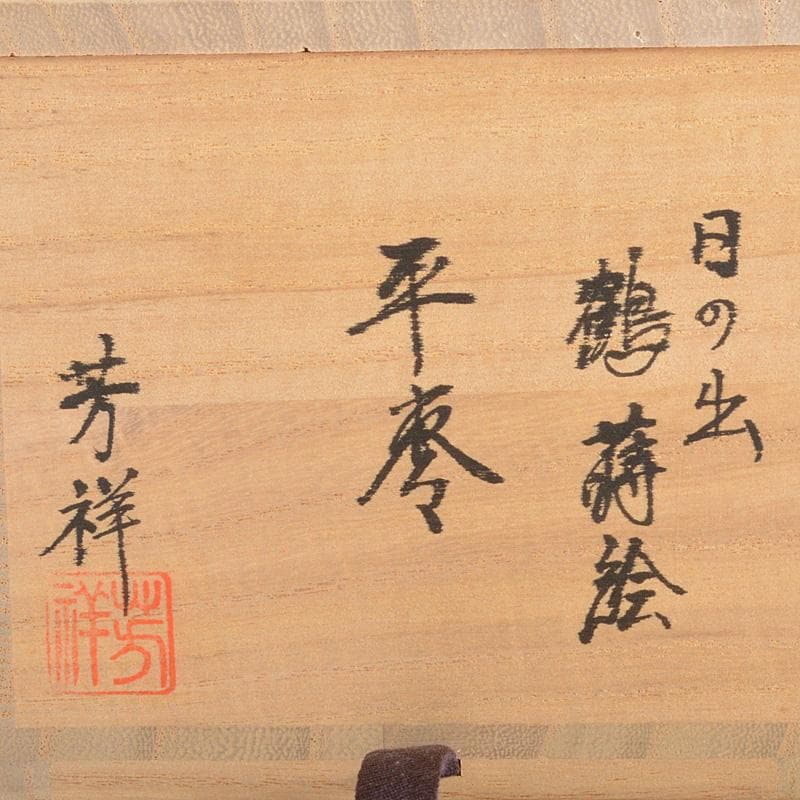 日の出
鶴蒔絵
平棗
芳祥
芳祥